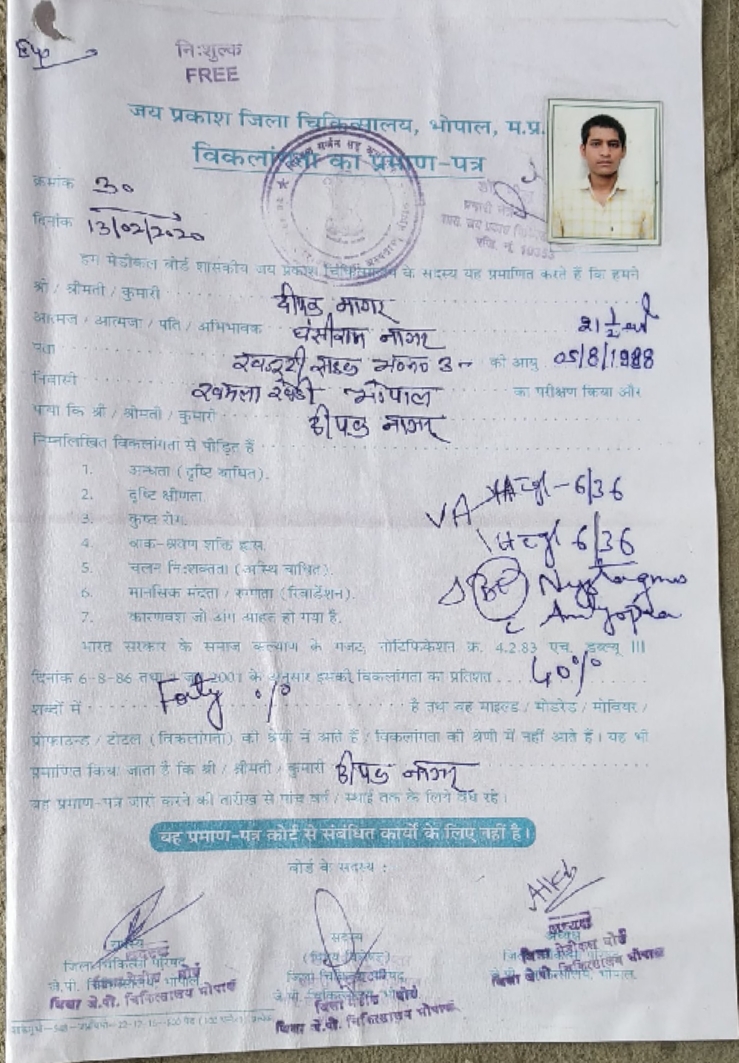 Eye
निःशुल्क
FREE
जय प्रकाश जिला चिकित्सालय, भोपाल, म.प्र.
विकलांगता का प्रमाण-पत्र
क्रमांक 30
दिनांक 13/02/2020
हम मेडीकल बोर्ड शासकीय जय प्रकाश चिकित्सालय के सदस्य यह प्रमाणित करते हैं कि हमने
श्री / श्रीमती / कुमारी दीपक नागर
आत्मज / आत्मजा / पति / अभिभावक घंसीराम नागर
पता खजूरी सड़क म०न० 3 की आयु 05/8/1988
निवासी भोपाल का परीक्षण किया और
पाया कि श्री / श्रीमती / कुमारी दीपक नागर
निम्नलिखित विकलांगता से पीड़ित हैं
1. अन्धता (दृष्टि बाधित).
2. दृष्टि क्षीणता.
3. कुष्ठ रोग.
4. वाक-श्रवण शक्ति ह्रास.
5. चलन निःशक्तता (अस्थि बाधित).
6. मानसिक मंदता / रूग्णता (रिटार्डेशन).
7. कारणवश जो अंग आहत हो गया है.
VA 6/36
6/36
BE Nystagmus
c Amblyopia
भारत सरकार के समाज कल्याण के गजट नोटिफिकेशन क्र. 4.2.83 एच. डब्ल्यू III
दिनांक 6-8-86 तथा 2001 के अनुसार इसकी विकलांगता का प्रतिशत 40%
शब्दों में Forty % है तथा वह माइल्ड / मोडरेट / सीवियर /
प्रोफाउन्ड / टोटल (विकलांगता) की श्रेणी में आते हैं / विकलांगता की श्रेणी में नहीं आते हैं। यह भी
प्रमाणित किया जाता है कि श्री / श्रीमती / कुमारी दीपक नागर
यह प्रमाण-पत्र जारी करने की तारीख से पांच वर्ष / स्थाई तक के लिये वैध रहे।
यह प्रमाण-पत्र कोर्ट से संबंधित कार्यों के लिए नहीं है।
बोर्ड के सदस्य :
सदस्य
सदस्य
अध्यक्ष
जिला मेडीकल बोर्ड
जिला जे.पी. चिकित्सालय भोपाल
जिला मेडीकल बोर्ड
जिला जे.पी. चिकित्सालय भोपाल
जिला मेडीकल बोर्ड
जिला जे.पी. चिकित्सालय भोपाल